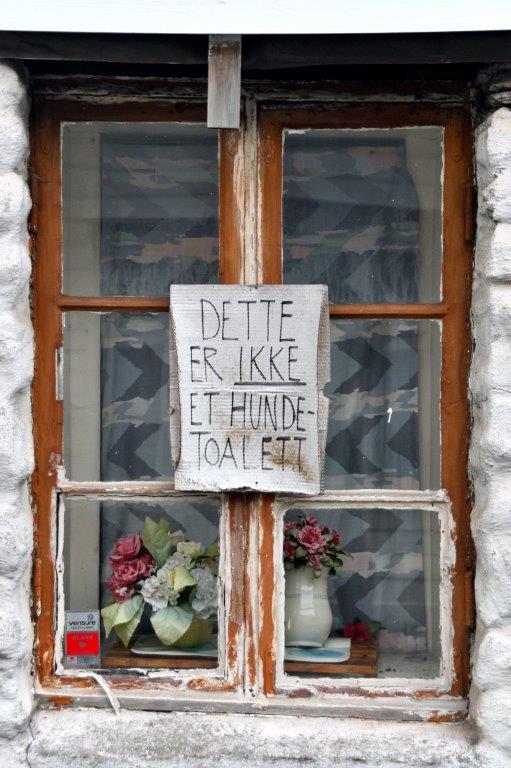 DETTE
ER IKKE
ET HUNDE-
TOALETT
verisure
ALARM